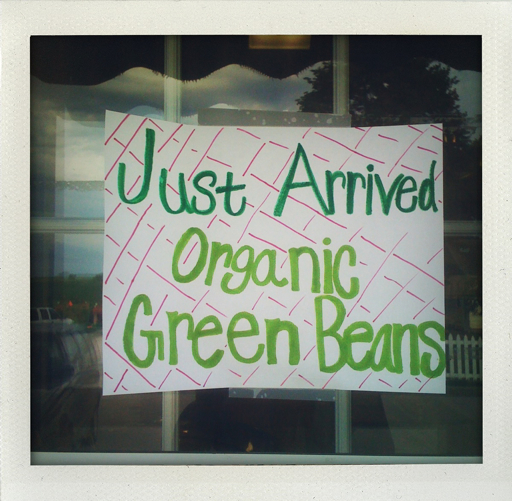 Just Arrived
Organic
Green Beans